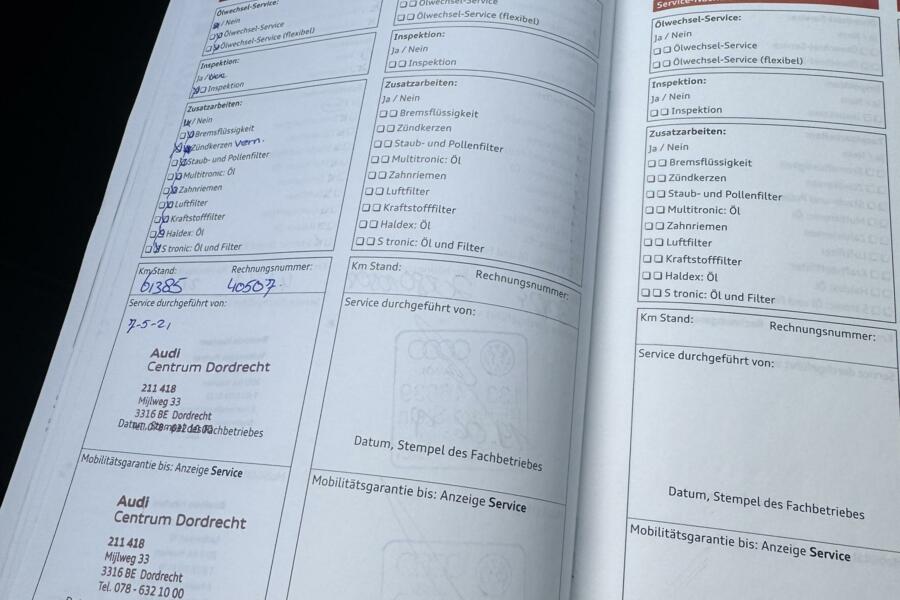 Ölwechsel-Service:
/ Nein
Ölwechsel-Service
Ölwechsel-Service (flexibel)
Inspektion:
Ja /
Inspektion
Zusatzarbeiten:
/ Nein
Bremsflüssigkeit
Zündkerzen Vern.
Staub- und Pollenfilter
Multitronic: Öl
Zahnriemen
Luftfilter
Kraftstofffilter
Haldex: Öl
S tronic: Öl und Filter
Km Stand: Rechnungsnummer:
61385 40507
Service durchgeführt von:
7-5-21
Audi
Centrum Dordrecht
211 418
Mijlweg 33
3316 BE Dordrecht
Tel. 078 - 632 10 00
Datum, Stempel des Fachbetriebes
Mobilitätsgarantie bis: Anzeige Service
Audi
Centrum Dordrecht
211 418
Mijlweg 33
3316 BE Dordrecht
Tel. 078 - 632 10 00
Ölwechsel-Service
Ölwechsel-Service (flexibel)
Inspektion:
Ja / Nein
Inspektion
Zusatzarbeiten:
Ja / Nein
Bremsflüssigkeit
Zündkerzen
Staub- und Pollenfilter
Multitronic: Öl
Zahnriemen
Luftfilter
Kraftstofffilter
Haldex: Öl
S tronic: Öl und Filter
Km Stand: Rechnungsnummer:
Service durchgeführt von:
Datum, Stempel des Fachbetriebes
Mobilitätsgarantie bis: Anzeige Service
Ölwechsel-Service:
Ja / Nein
Ölwechsel-Service
Ölwechsel-Service (flexibel)
Inspektion:
Ja / Nein
Inspektion
Zusatzarbeiten:
Ja / Nein
Bremsflüssigkeit
Zündkerzen
Staub- und Pollenfilter
Multitronic: Öl
Zahnriemen
Luftfilter
Kraftstofffilter
Haldex: Öl
S tronic: Öl und Filter
Km Stand: Rechnungsnummer:
Service durchgeführt von:
Datum, Stempel des Fachbetriebes
Mobilitätsgarantie bis: Anzeige Service